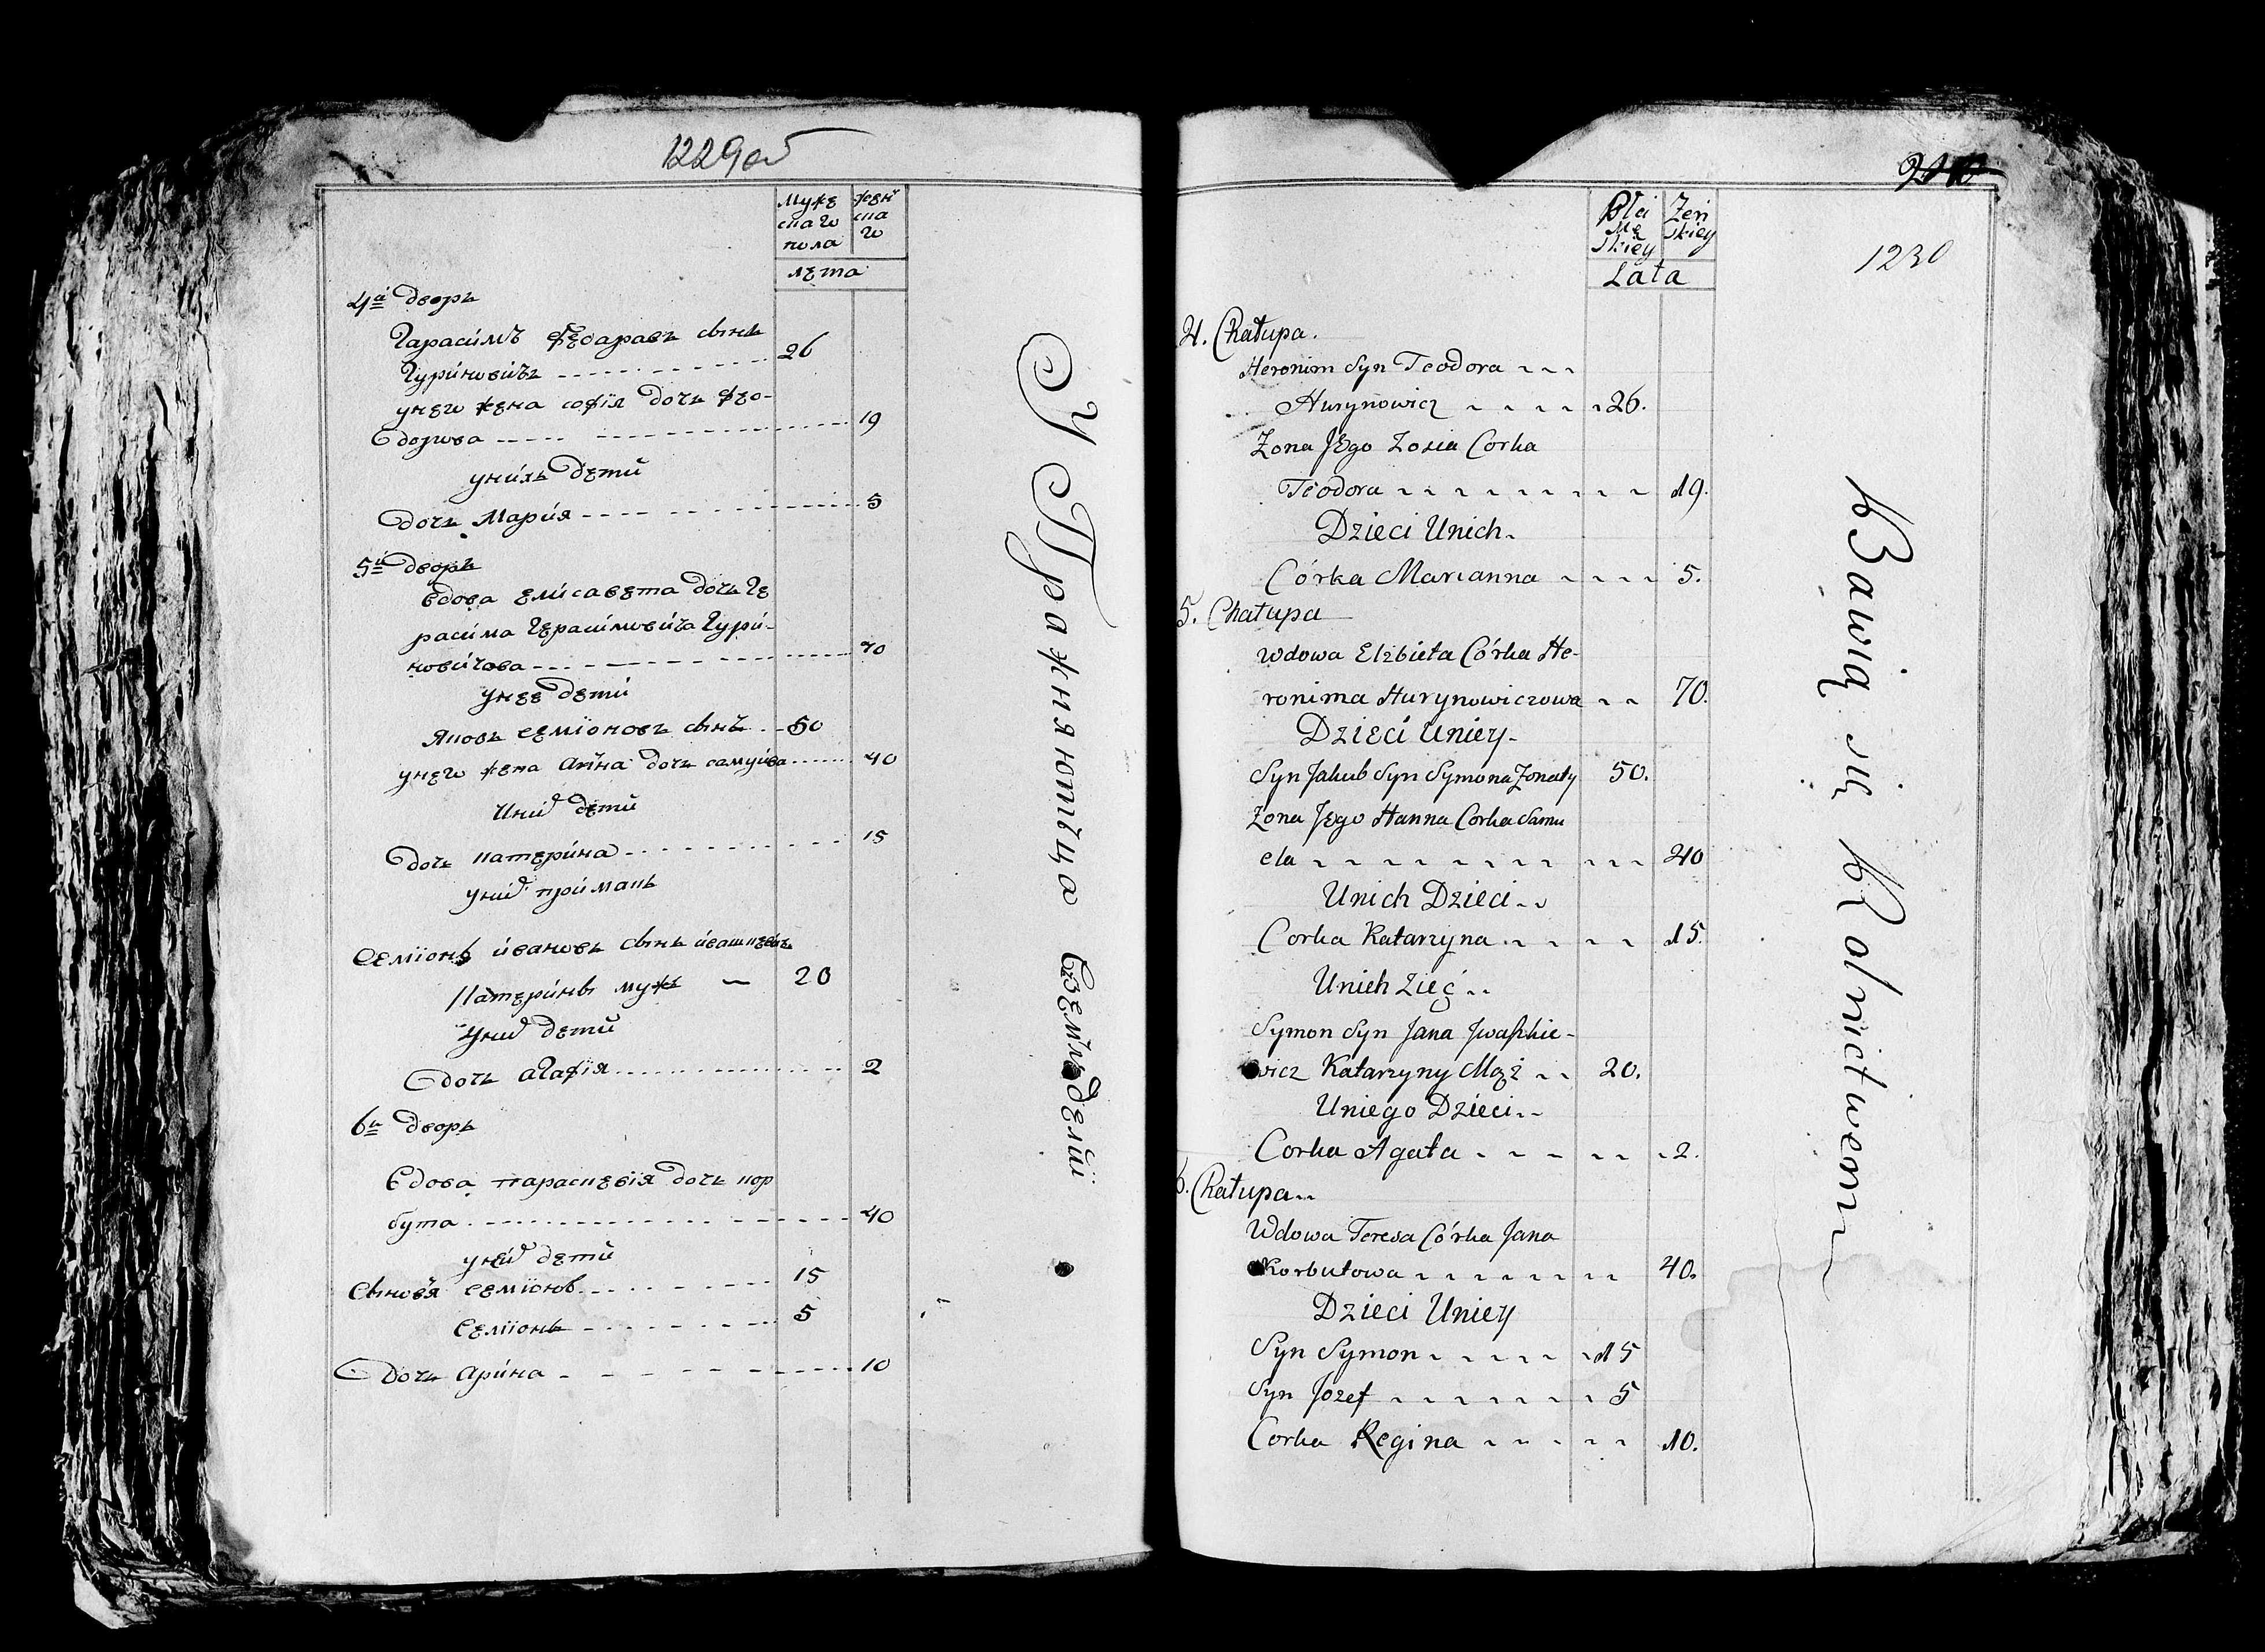 1229об
Муже
скаго
пола
жен
ска
го
лѣта
4й дворъ
Гарасимъ Ѳедаравъ сынъ
Гуриновичъ 26
унего жена софія дочь Ѳео-
дорова 19
унихъ дети
дочь Марія 5
5й дворъ
вдова елисавета дочь Ге
расима Герасимовича Гури-
новичова 70
унее дети
Яковъ семіоновъ сынъ 50
унего жена анна дочь самуйва 40
Уних дети
дочь катерина 15
уних примакъ
Семіонъ ивановъ сынъ ивашкевичь
Катерины мужъ 20
Уних дети
дочь агафія 2
6й дворъ
Вдова параскевія дочь кор
бута 40
уней дети
сыновя семіонъ 15
Семіонъ 5
дочь арина 10
Упражняютца вземледелїи
1230
Płci
Mę
skiey
Zeń
skiey
Lata
4. Chałupa.
Heronim Syn Teodora
Hurynowicz 26.
Zona Jego Zosia Corka
Teodora 19.
Dzieci Unich.
Córka Marianna 5.
5. Chałupa
Wdowa Elzbieta Córka He-
ronima Hurynowiczowa 70.
Dzieci Uniey
Syn Jakub Syn Symona Zonaty 50.
Zona Jego Hanna Corka Samu
ela 40
Unich Dzieci
Corka Katarzyna 15.
Unich Zieć
Symon Syn Jana Jwaszkie-
wicz Katarzyny Mąż 20.
Uniego Dzieci
Corka Agata 2.
6. Chałupa
Wdowa Teresa Córka Jana
Korbutowa 40.
Dzieci Uniey
Syn Symon 15
Syn Jozef 5
Corka Regina 10.
Bawią się Rolnictwem